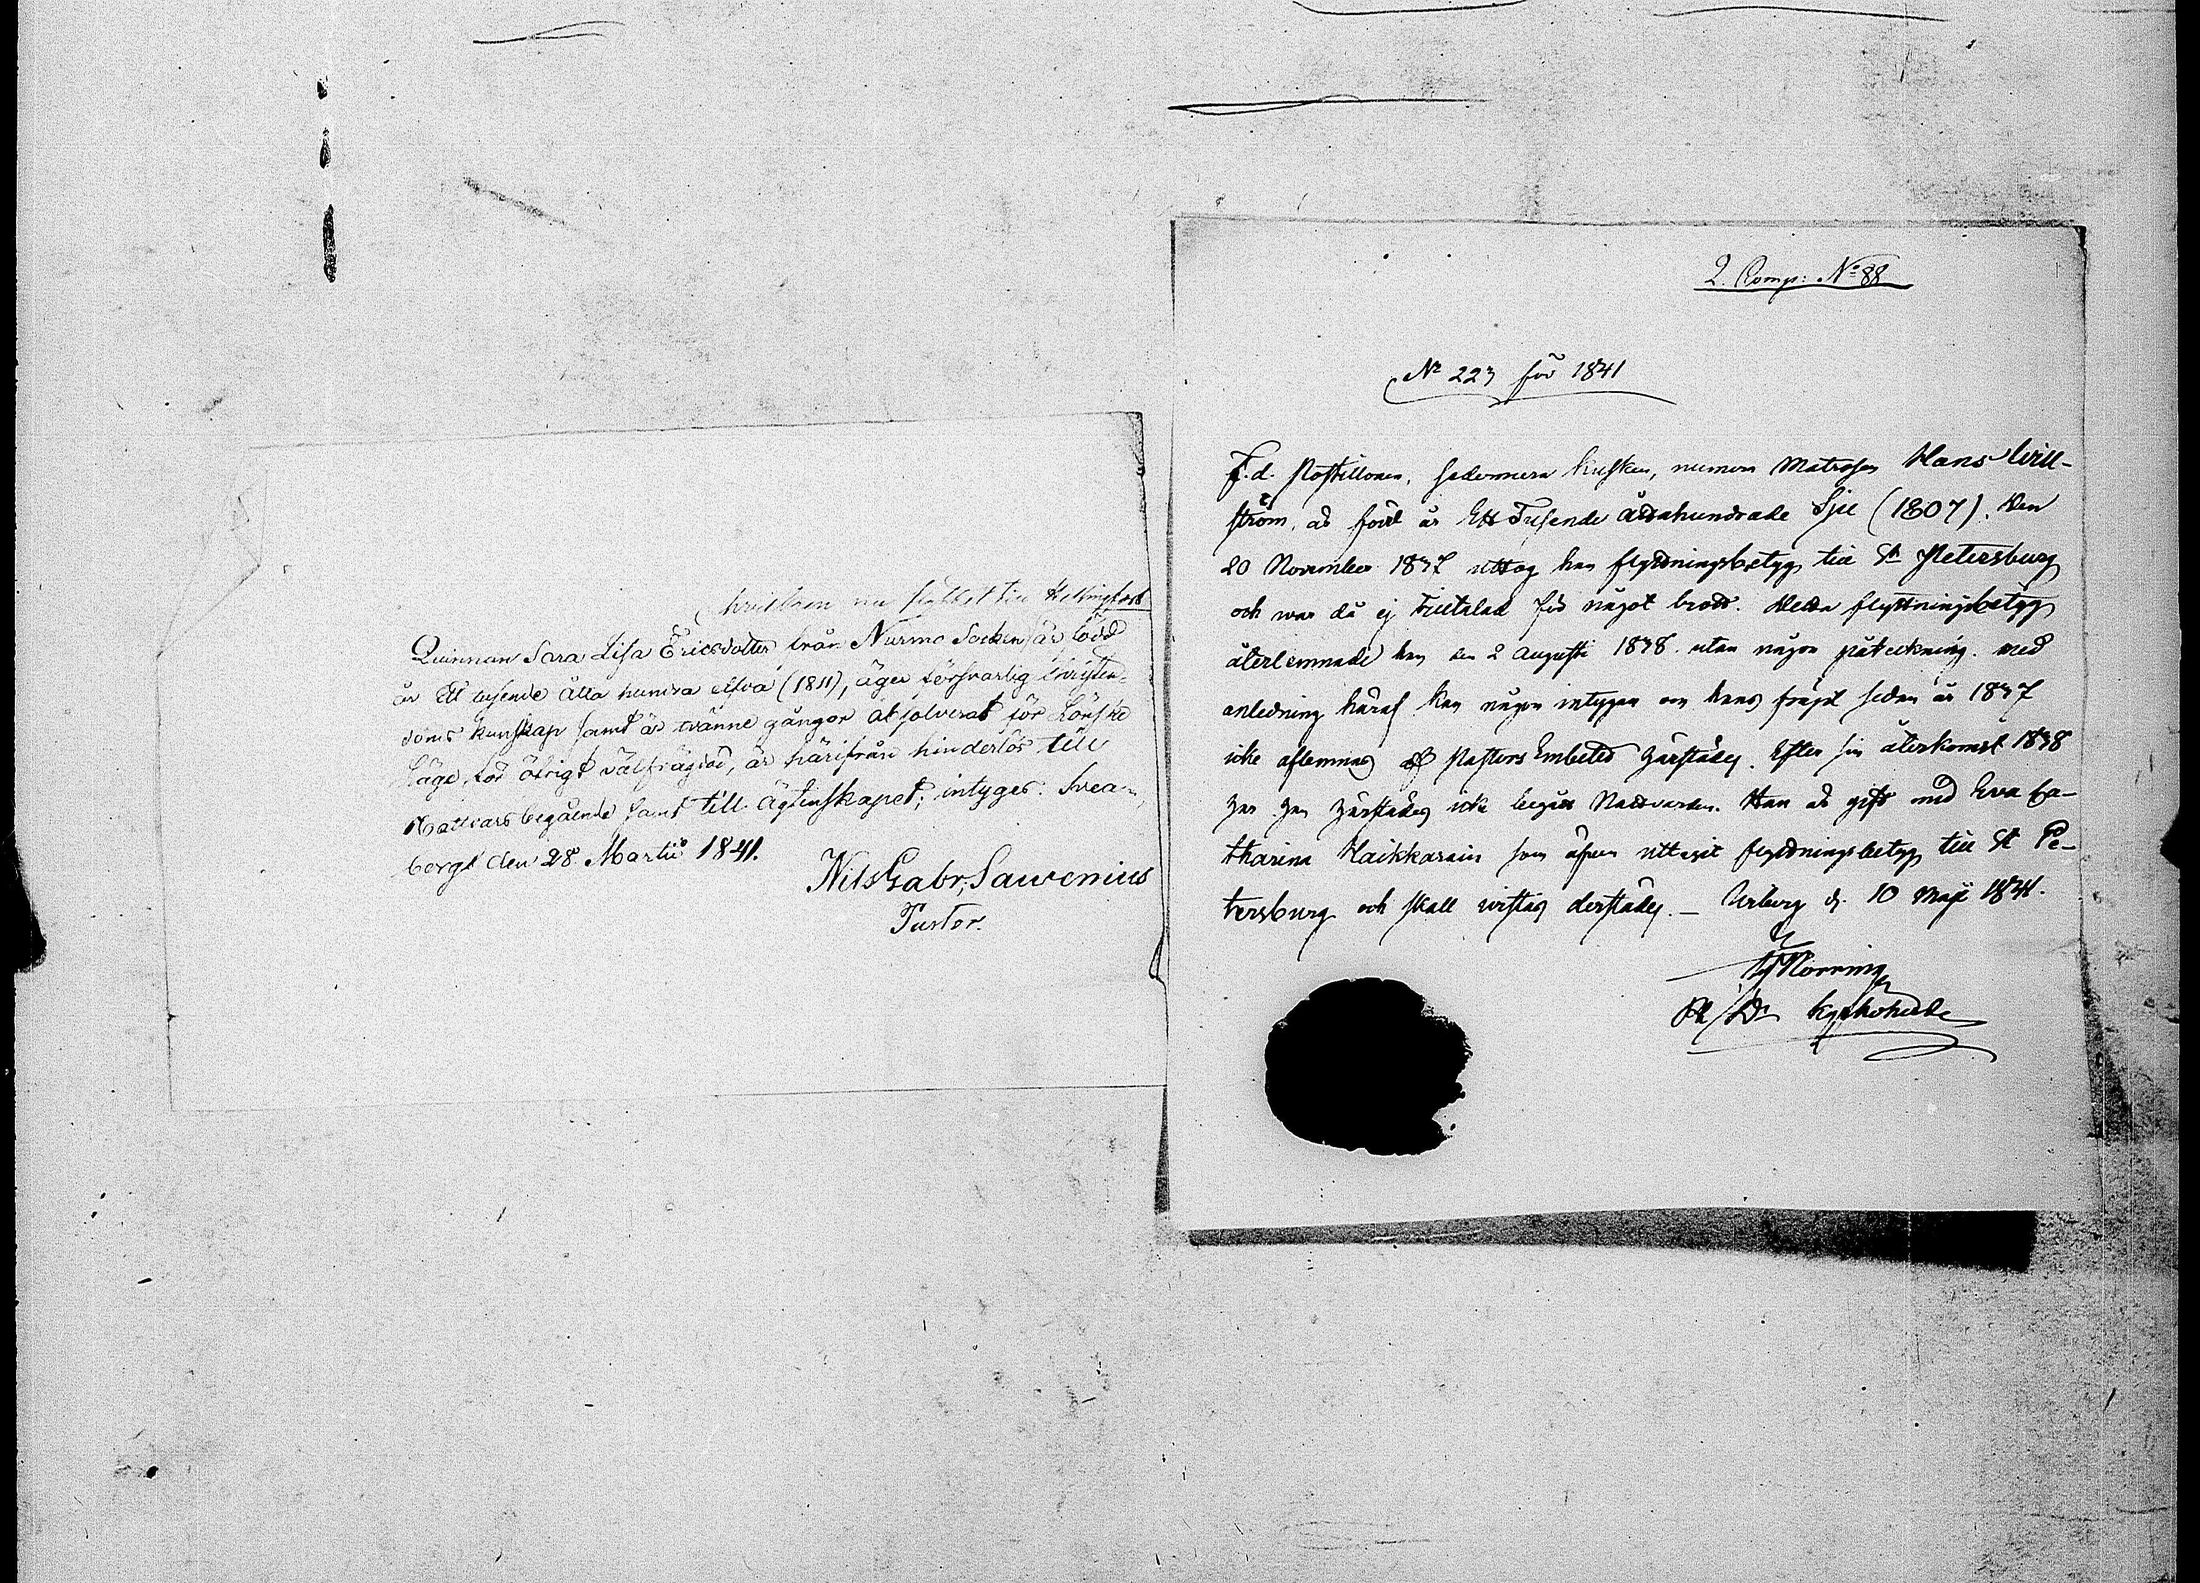 hvilken nu flyttet till Helsingfors
Quinnan Sara Lisa Ericsdotter från Nurmo Socken, är född
år Ett tusende åtta hundra elfva (1811), äger försvarlig Christen-
doms kunskap samt är tvänne gångor absolverat för Lönske
Läge, för öfrigt välfrägdad, är härifrån hinderlös till
Nattvards begående samt till Ägtenskapet; intygar. Svea-
borgt den 28 Martii 1841.
Nils Gabr. Sawenius
Pastor.
2. Comp: No 88
No 223 för 1841
F.d. Postillonen, sedermera kusken, numera Matrosen Hans Will-
ström, är född år Ett Tusende Åttahundrade Sju (1807). Den
20 November 1837 uttog han flyttningsbetyg till St Petersburg
och war då ej tilltalad för något brott. Detta flyttningsbetyg
återlemnade han den 2 Augusti 1838 utan någon påteckning. Med
anledning häraf kan någon intygan om hans frägd sedan år 1837
icke aflemnas af Pastors Embetet härstädes. Efter sin återkomst 1838
har han härstädes icke begått Nattvarden. Han är gift med Eva Ca-
tharina Haikkarain som äfven uttagit flyttningsbetyg till St Pe-
tersburg och skall vistas derstädes. — Wiborg d. 10 Maji 1841.
Norring
Kyrkoherde